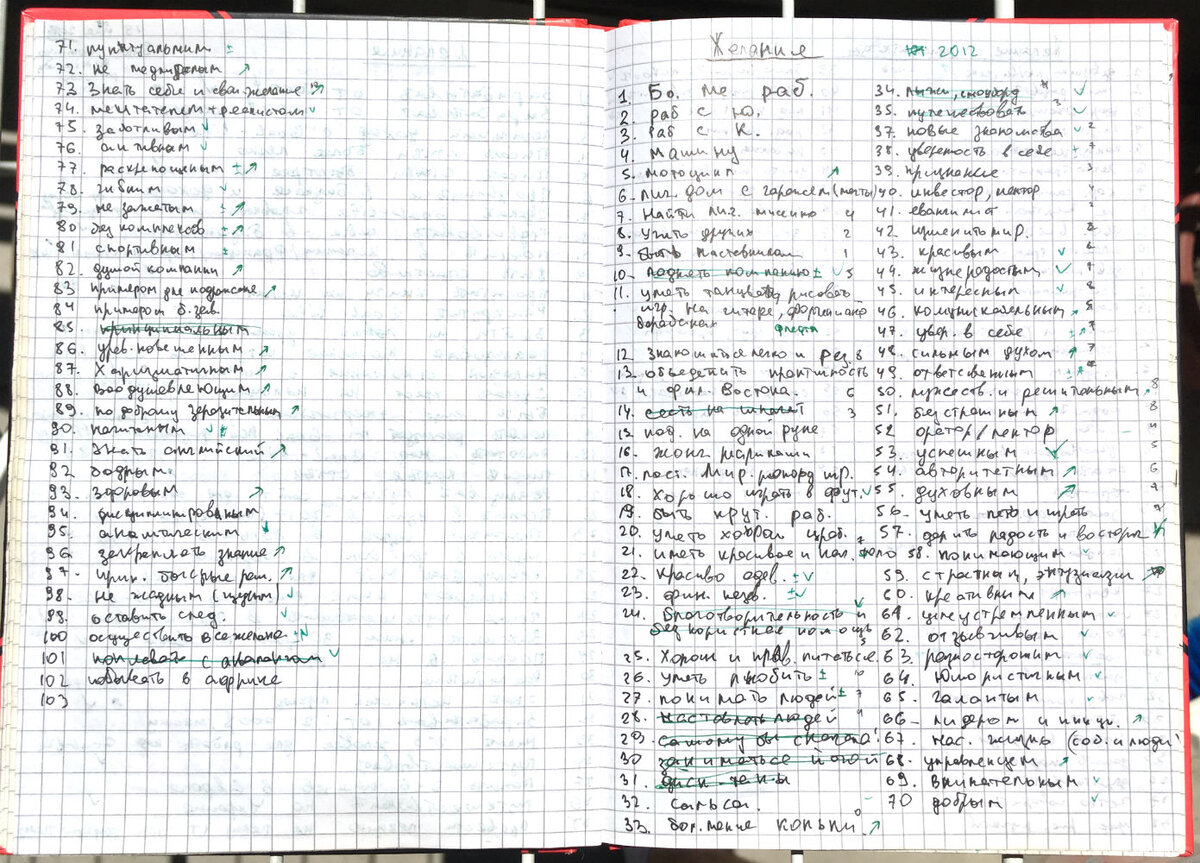 71. пунктуальным ±
72. не педантичным ↗
73 Знать себя и свои желание ↗
74. мечтателем + реалистом ✓
75. заботливым ✓
76. активным ✓
77. раскрепощенным ± ↗
78. гибким ✓
79. не зажатым ± ↗
80 без комплексов ± ↗
81 спортивным ±
82. душой компании ↗
83 примером для подрожание ↗
84 примером б.
85. принципиальным
86. уровновешенным ↗
87. Харизматичным ↗
88. Воодушевляющим ↗
89. по доброму ↗
90. начитанным ✓ ±
91. Знать английский ↗
92 бодрым
93. здоровым ↗
94. дисциплинированным
95. аналитическим ✓
96. закреплять знание ↗
97. прин. быстрые реш. ↗
98. не жадным (щедрым) ✓
99. оставить след. ✓
100 осуществить все желание ± ✓
101 поплавать с аквалангом ✓
102 побывать в африке
103
Желание
2012
1. Бо. ме. раб.
2. раб с но.
3. раб с К.
4. машину
5. мотоцикл ↗
6. лич. дом с гаражем (мечты)
7. Найти лич. миссию 4
8. учить других 2
9. быть наставником 1
10. поднять компанию ± ✓ 5
11. уметь танцевать, рисовать
игр. на гитаре, фортепиано
барабанах флейта
12 Знакомиться легко и рез. в
13. объеденить практичность
и фил. Востока. 6
14. сесть на шпагат 3
15 под. на одной руке
16. жонг шариками
17. пост. Мир. рекорд гр.
18. хорошо играть в фут. ✓
19. быть крут. раб.
20. уметь хорош
21. иметь красивое и кач. тело
22. красиво одев. ± ✓
23. фин. незв. ± ✓
24. благотворительность и ✓
бескорыстная помощь
25. Хорош и прав. питаться 5
26. уметь любить ± 10
27. понимать людей ± 7
28. наставлять людей 9
29. самому бы сначала!
30 заниматься йогой
31. диск теки
32. сальса. –
33. бол. мение коньки ↗
34. лыжи, сноуборд ✓
35. путешествовать 3 ✓
37. новые знакомства ✓ 2
38. уверетость в себе + 7
39. признание 3
40. инвестор, ментор
41. евангилист
42. изменить мир.
43. красивым ✓
44. жизнерадостым ✓
45. интересным ✓ 8
46. комуникабельным ↗ 8
47. увер. в себе ± ↗ 7
48. сильным духом ↗ 7
49. ответственным ±
50. мужеств. и решительным 8
51. бесстрашным ↗ 8
52 оратор/лектор
53. успешным ✓ 5
54. авторитетным ↗ 6
55. духовным ↗
56. уметь петь и играть
57. дарить радость и восторг ✓
58. понимающим ✓
59. страстным, энтузиазм
60. креативным ↗
61. целеустремленным ✓
62. отзывчивым ✓
63. разносторонним ✓
64. Юмористичным ✓
65. Галантым ✓
66 – лидером и иниц. ↗
67. нас. жизнь (соб. и люди)
68. управленцем ↗
69. Внимательным ✓
70 добрым ✓